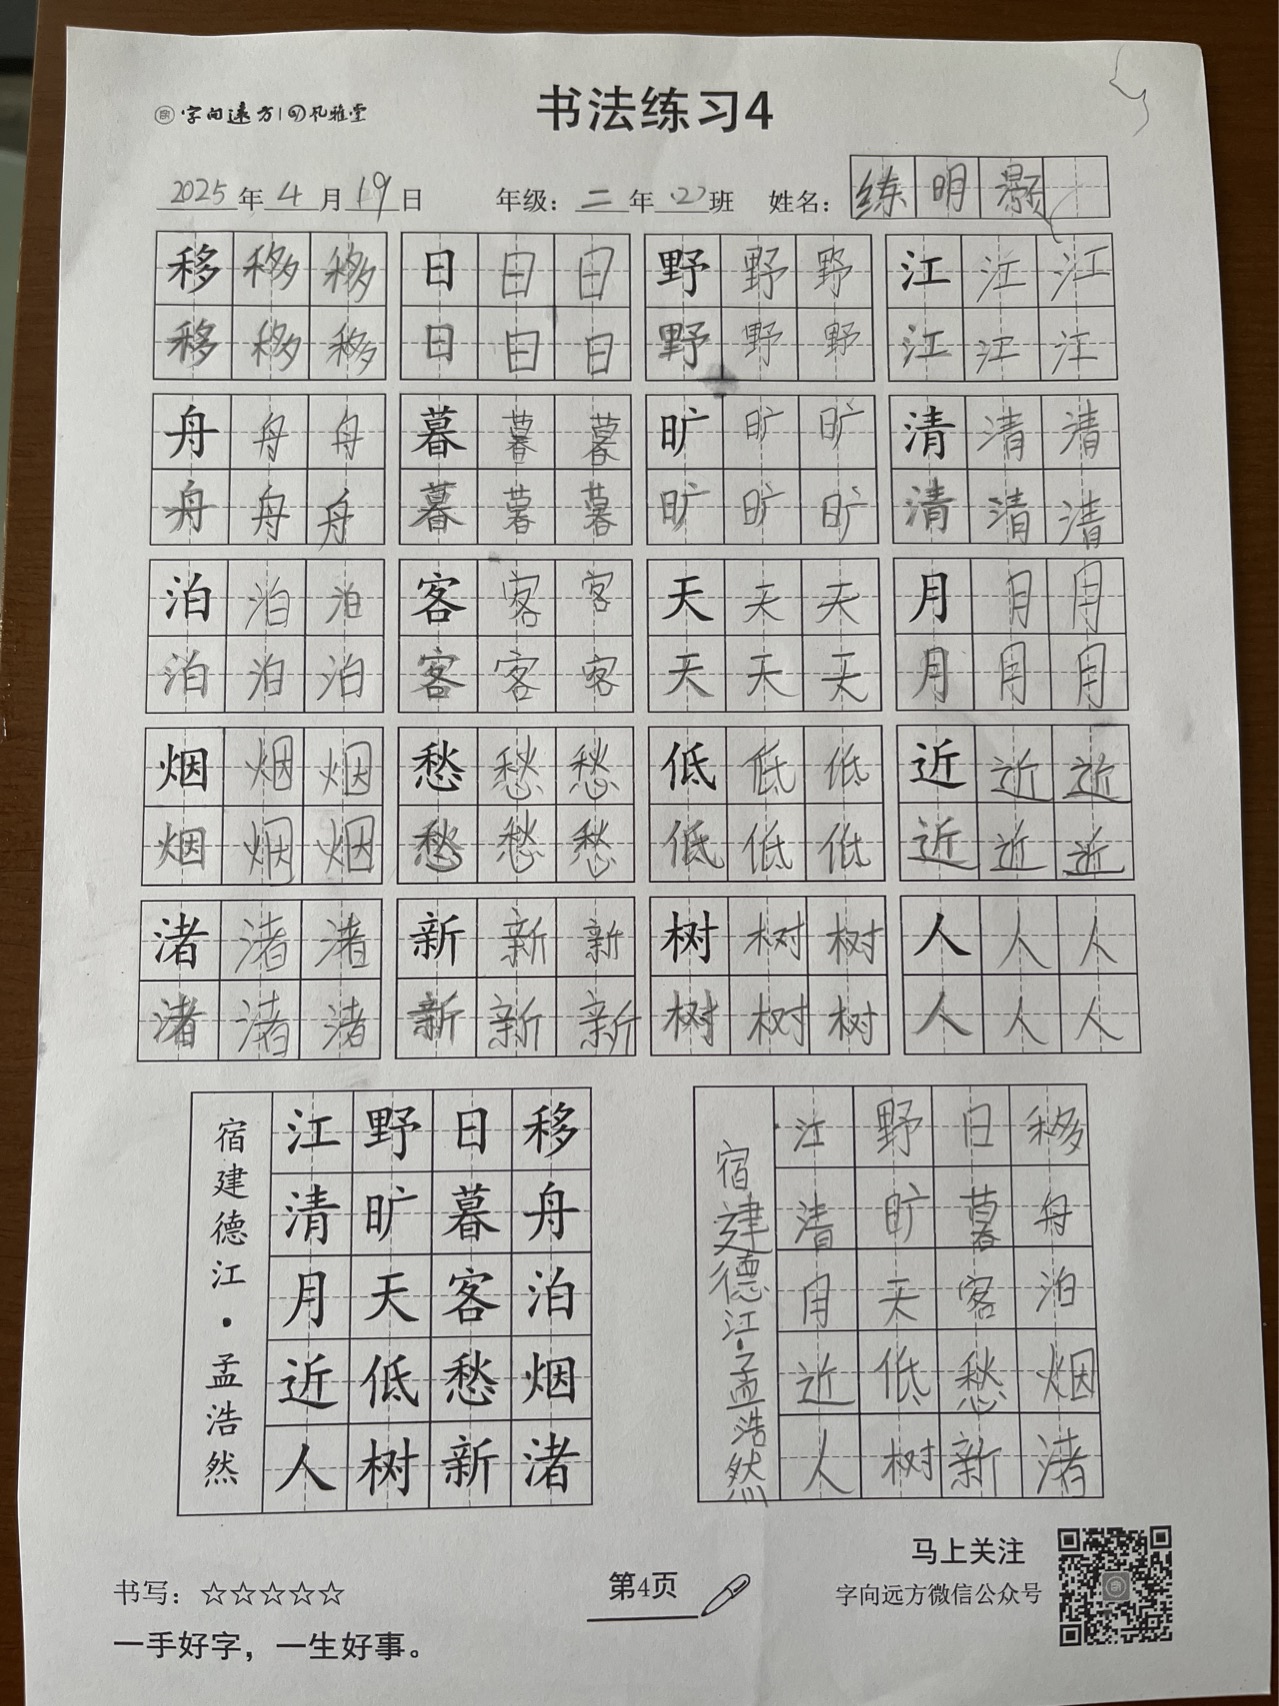 字向远方 风雅堂
书法练习4
2025年4月19日 年级：二年(2)班 姓名：练明灏
移移移 日日日 野野野 江江江
移移移 日日日 野野野 江江江
舟舟舟 暮暮暮 旷旷旷 清清清
舟舟舟 暮暮暮 旷旷旷 清清清
泊泊泊 客客客 天天天 月月月
泊泊泊 客客客 天天天 月月月
烟烟烟 愁愁愁 低低低 近近近
烟烟烟 愁愁愁 低低低 近近近
渚渚渚 新新新 树树树 人人人
渚渚渚 新新新 树树树 人人人
移舟泊烟渚
日暮客愁新
野旷天低树
江清月近人
宿建德江·孟浩然
移舟泊烟渚
日暮客愁新
野旷天低树
江清月近人
宿建德江·孟浩然
书写：☆☆☆☆☆
一手好字，一生好事。
第4页
马上关注
字向远方微信公众号